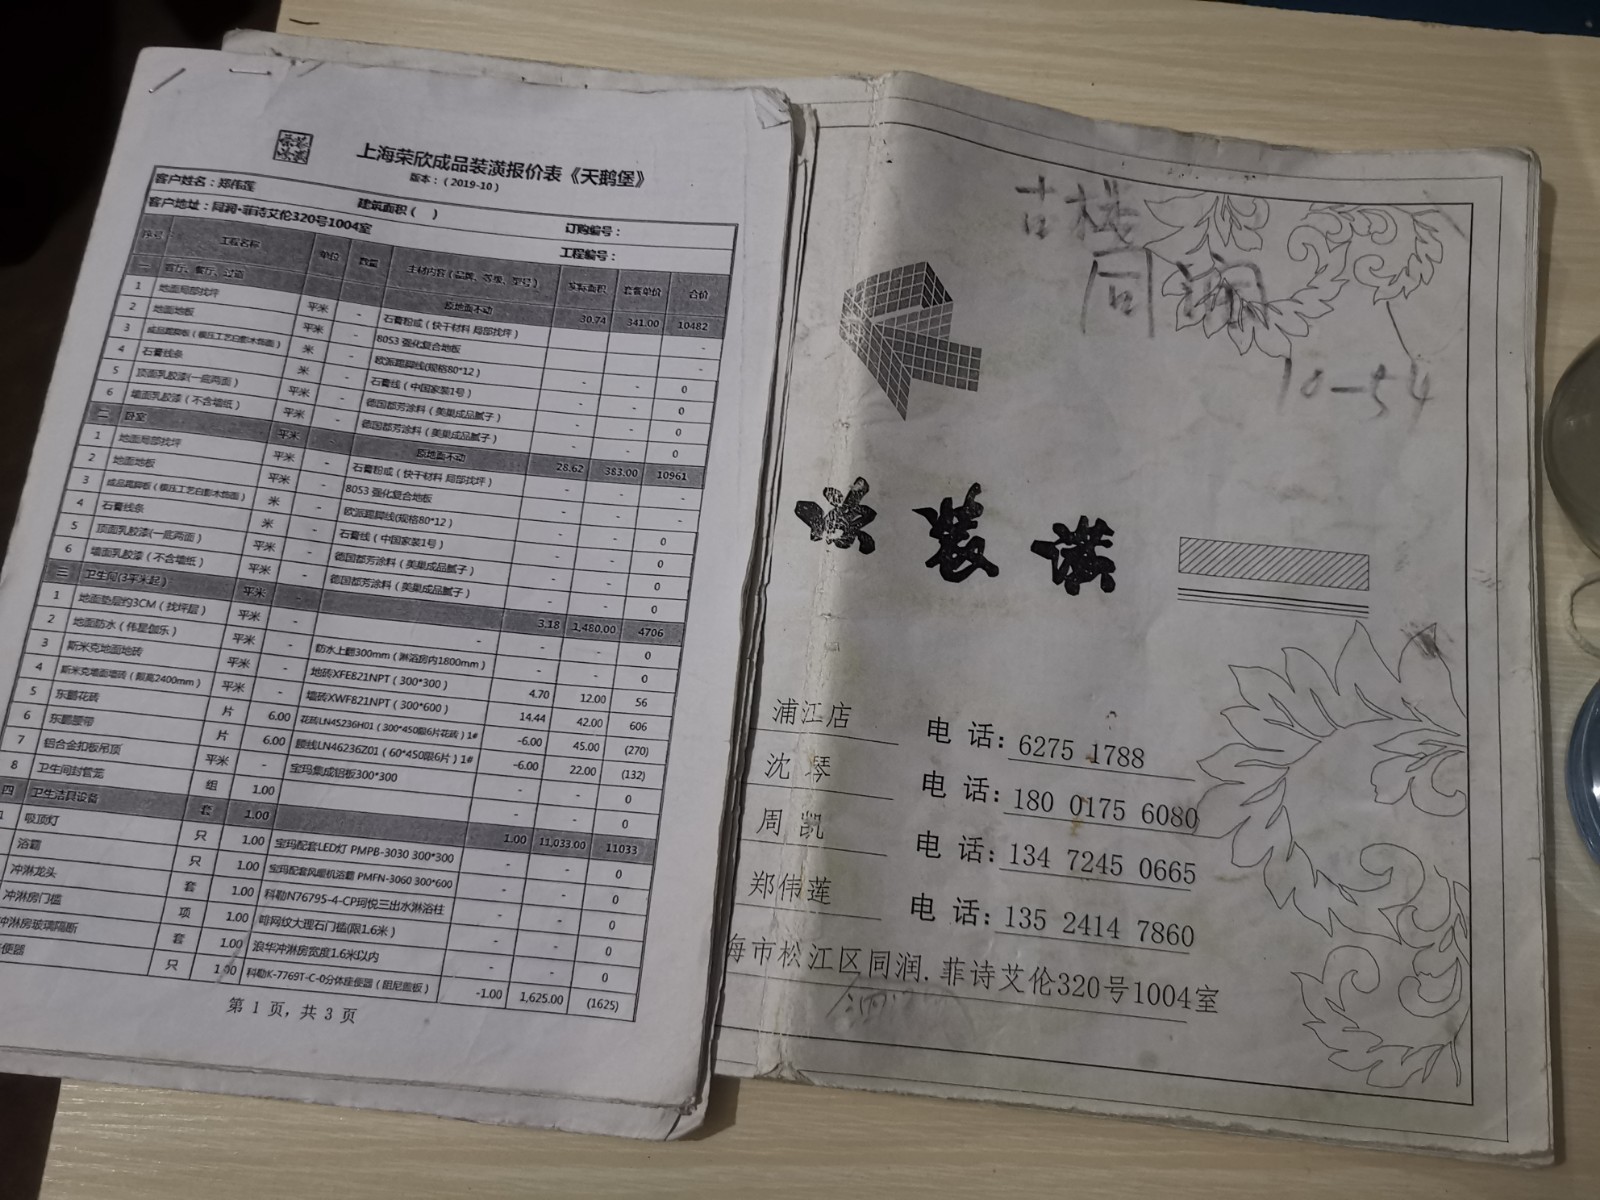 上海荣欣成品装潢报价表《天鹅堡》
版本：（2019-10）
客户姓名：郑伟莲 建筑面积（ ） 订购编号：
客户地址：同润·菲诗艾伦320号1004室 工程编号：
序号 工程名称 单位 数量 主材内容（品牌、等级、型号） 实际面积 套餐单价 合价
一 客厅、餐厅、过道 原地面不动 30.74 341.00 10482
1 地面局部找坪 平米 - 石膏粉或（快干材料 局部找坪） -
2 地面地板 平米 - 8053 强化复合地板 -
3 成品踢脚板（模压工艺白影木饰面） 米 - 欧派踢脚线(规格80*12) - - 0
4 石膏线条 米 - 石膏线（中国家装1号） - - 0
5 顶面乳胶漆(一底两面) 平米 - 德国都芳涂料（美巢成品腻子） - - 0
6 墙面乳胶漆（不含墙纸） 平米 - 德国都芳涂料（美巢成品腻子） - - 0
二 卧室 平米 - 原地面不动 28.62 383.00 10961
1 地面局部找坪 平米 - 石膏粉或（快干材料 局部找坪） - - -
2 地面地板 平米 - 8053 强化复合地板 - - -
3 成品踢脚板（模压工艺白影木饰面） 米 - 欧派踢脚线(规格80*12) - - 0
4 石膏线条 米 - 石膏线（中国家装1号） - - 0
5 顶面乳胶漆(一底两面) 平米 - 德国都芳涂料（美巢成品腻子） - - 0
6 墙面乳胶漆（不含墙纸） 平米 - 德国都芳涂料（美巢成品腻子） - - 0
三 卫生间(3平米起) 平米 - 3.18 1,480.00 4706
1 地面垫层约3CM（找坪层） 平米 - - - - 0
2 地面防水（伟星伽乐） 平米 - 防水上翻300mm（淋浴房内1800mm） - - 0
3 斯米克地面地砖 平米 - 地砖XFE821NPT（300*300） 4.70 12.00 56
4 斯米克墙面墙砖（限高2400mm） 平米 - 墙砖XWF821NPT（300*600） 14.44 42.00 606
5 东鹏花砖 片 6.00 花砖LN45236H01（300*450限6片花砖）1# -6.00 45.00 (270)
6 东鹏腰带 片 6.00 腰线LN46236Z01（60*450限6片）1# -6.00 22.00 (132)
7 铝合金扣板吊顶 平米 - 宝玛集成铝板300*300 - - 0
8 卫生间封管笼 组 1.00 - - 0
四 卫生洁具设备 套 1.00 1.00 11,033.00 11033
1 吸顶灯 只 1.00 宝玛配套LED灯 PMPB-3030 300*300 - - 0
浴霸 只 1.00 宝玛配套风暖机浴霸 PMFN-3060 300*600 - - 0
冲淋龙头 套 1.00 科勒N76795-4-CP珂悦三出水淋浴柱 - - 0
冲淋房门槛 项 1.00 啡网纹大理石门槛(限1.6米） - - 0
冲淋房玻璃隔断 套 1.00 浪华冲淋房宽度1.6米以内 - - 0
便器 只 1.00 科勒K-7769T-C-0分体座便器（阻尼盖板） -1.00 1,625.00 (1625)
第 1 页，共 3 页
古楼
同润
10-54
装 潢
浦江店 电 话：6275 1788
沈 琴 电 话：180 0175 6080
周 凯 电 话：134 7245 0665
郑伟莲 电 话：135 2414 7860
海市松江区同润.菲诗艾伦320号1004室